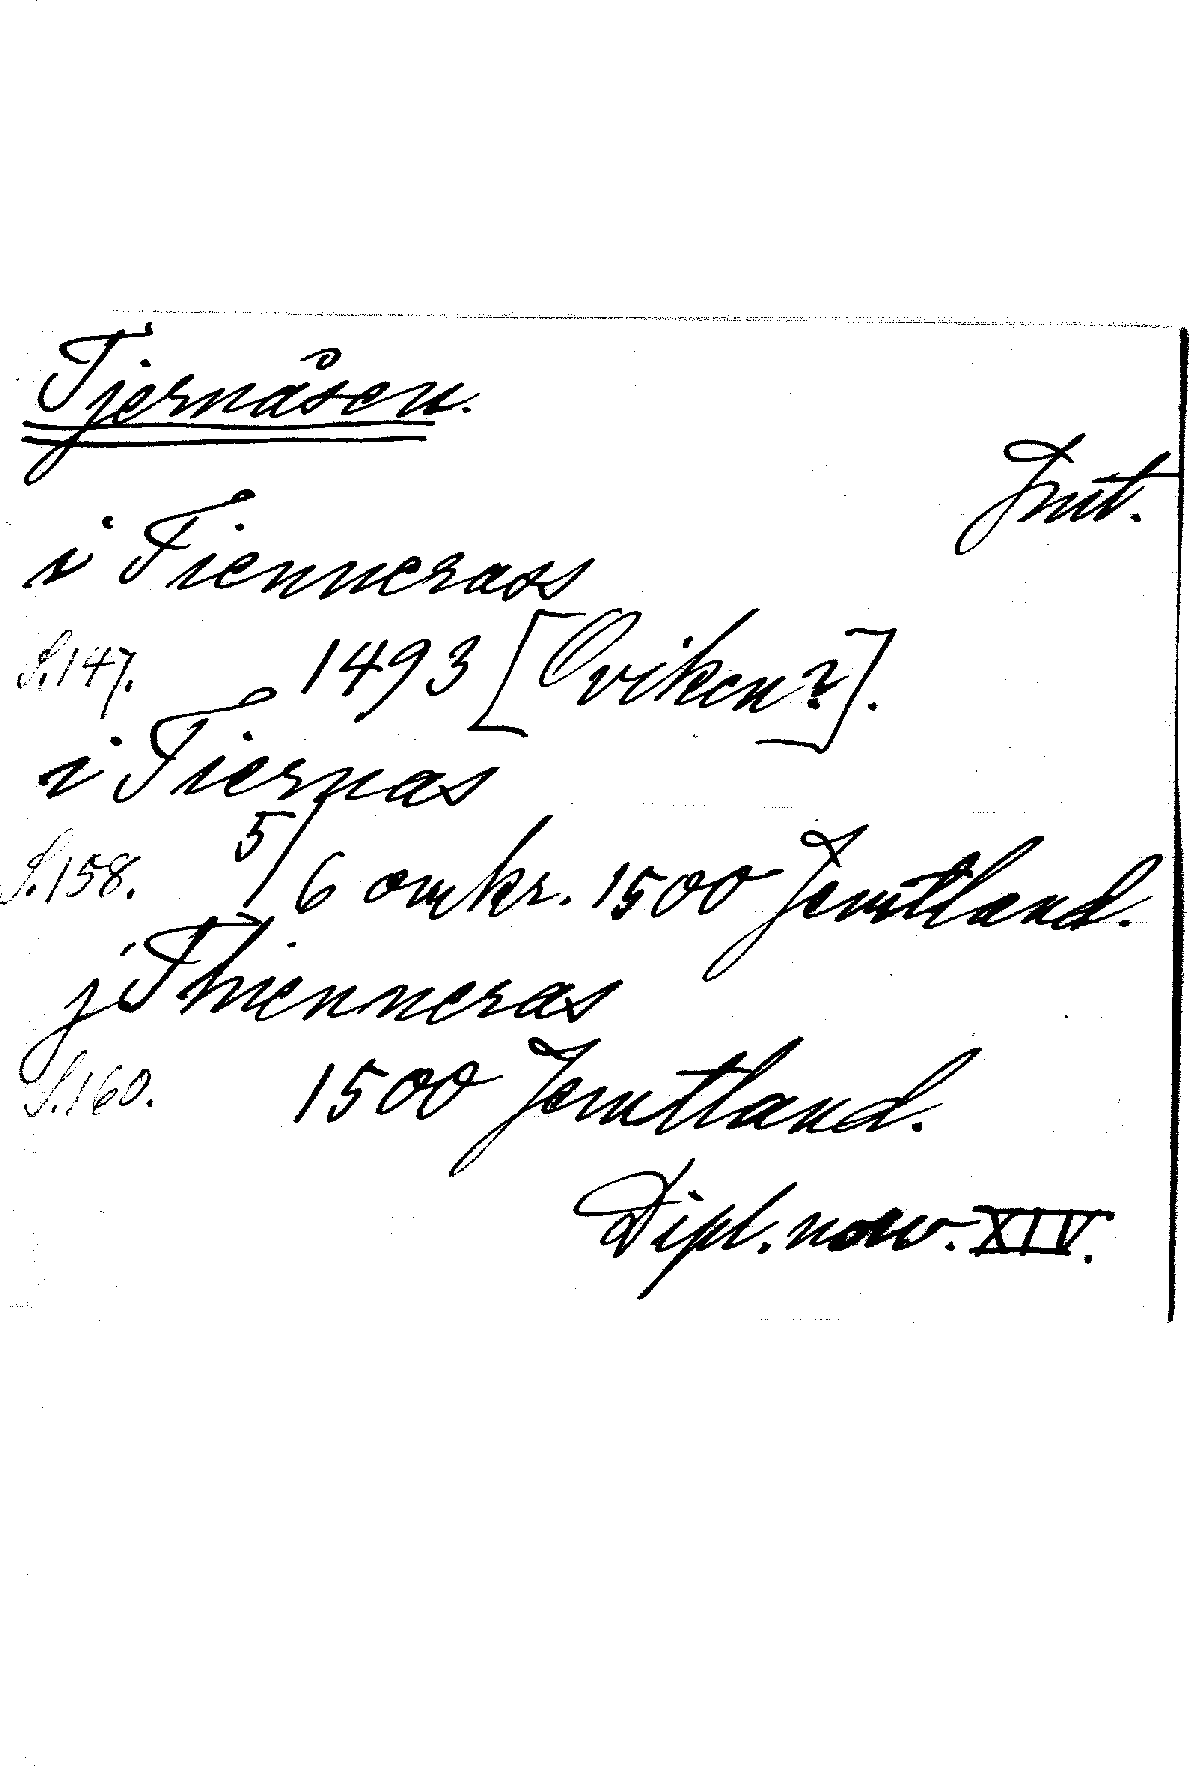 Tjernåsen.
Jmt.
i Tiennerass
S.147. 1493 [Oviken?].
i Tiernas
S.158. 5/6 omkr. 1500 Jemtland.
j Thienneras
S.160. 1500 Jemtland.
Dipl. norv. XIV.